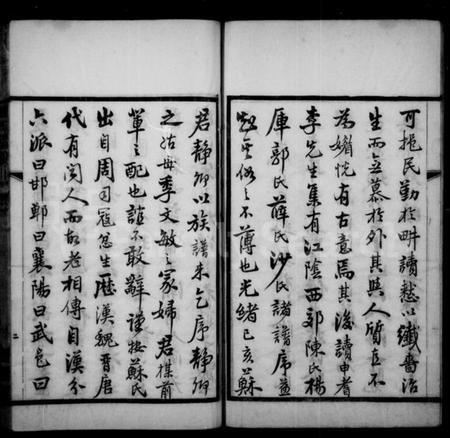 可挹民勤於畊讀愁以纖嗇治
生而無慕於外其與人質直不
為媚悅有古意焉其後讀申耆
李先生集有江陰西郊陳氏楊
厙郭氏薛氏沙氏諸譜序益
知其俗之不薄也光緒己亥蘇
君靜卿以族譜來乞序靜卿
之姑母季文敏之冢婦君楳前
輩之配也誼不敢辭謹按蘇氏
出自周司寇忿生歷漢魏晉唐
代有聞人而故老相傳自漢分
六派曰邯鄲曰襄陽曰武邑曰
二